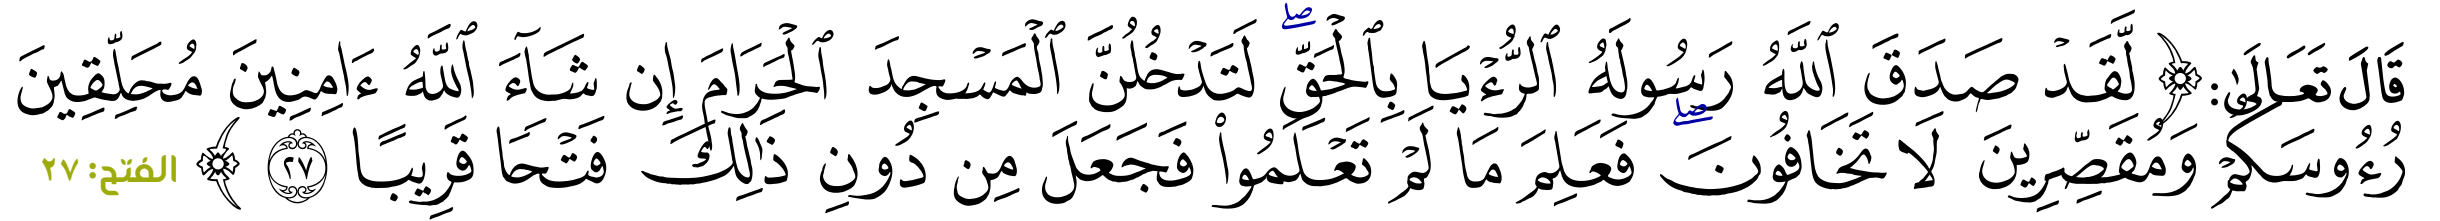 قَالَ تَعَالَىٰ: ﴿ لَّقَدۡ صَدَقَ ٱللَّهُ رَسُولَهُ ٱلرُّءۡيَا بِٱلۡحَقِّۖ لَتَدۡخُلُنَّ ٱلۡمَسۡجِدَ ٱلۡحَرَامَ إِن شَآءَ ٱللَّهُ ءَامِنِينَ مُحَلِّقِينَ
رُءُوسَكُمۡ وَمُقَصِّرِينَ لَا تَخَافُونَۖ فَعَلِمَ مَا لَمۡ تَعۡلَمُواْ فَجَعَلَ مِن دُونِ ذَٰلِكَ فَتۡحٗا قَرِيبًا ٢٧ ﴾ الفَتۡح: ٢٧